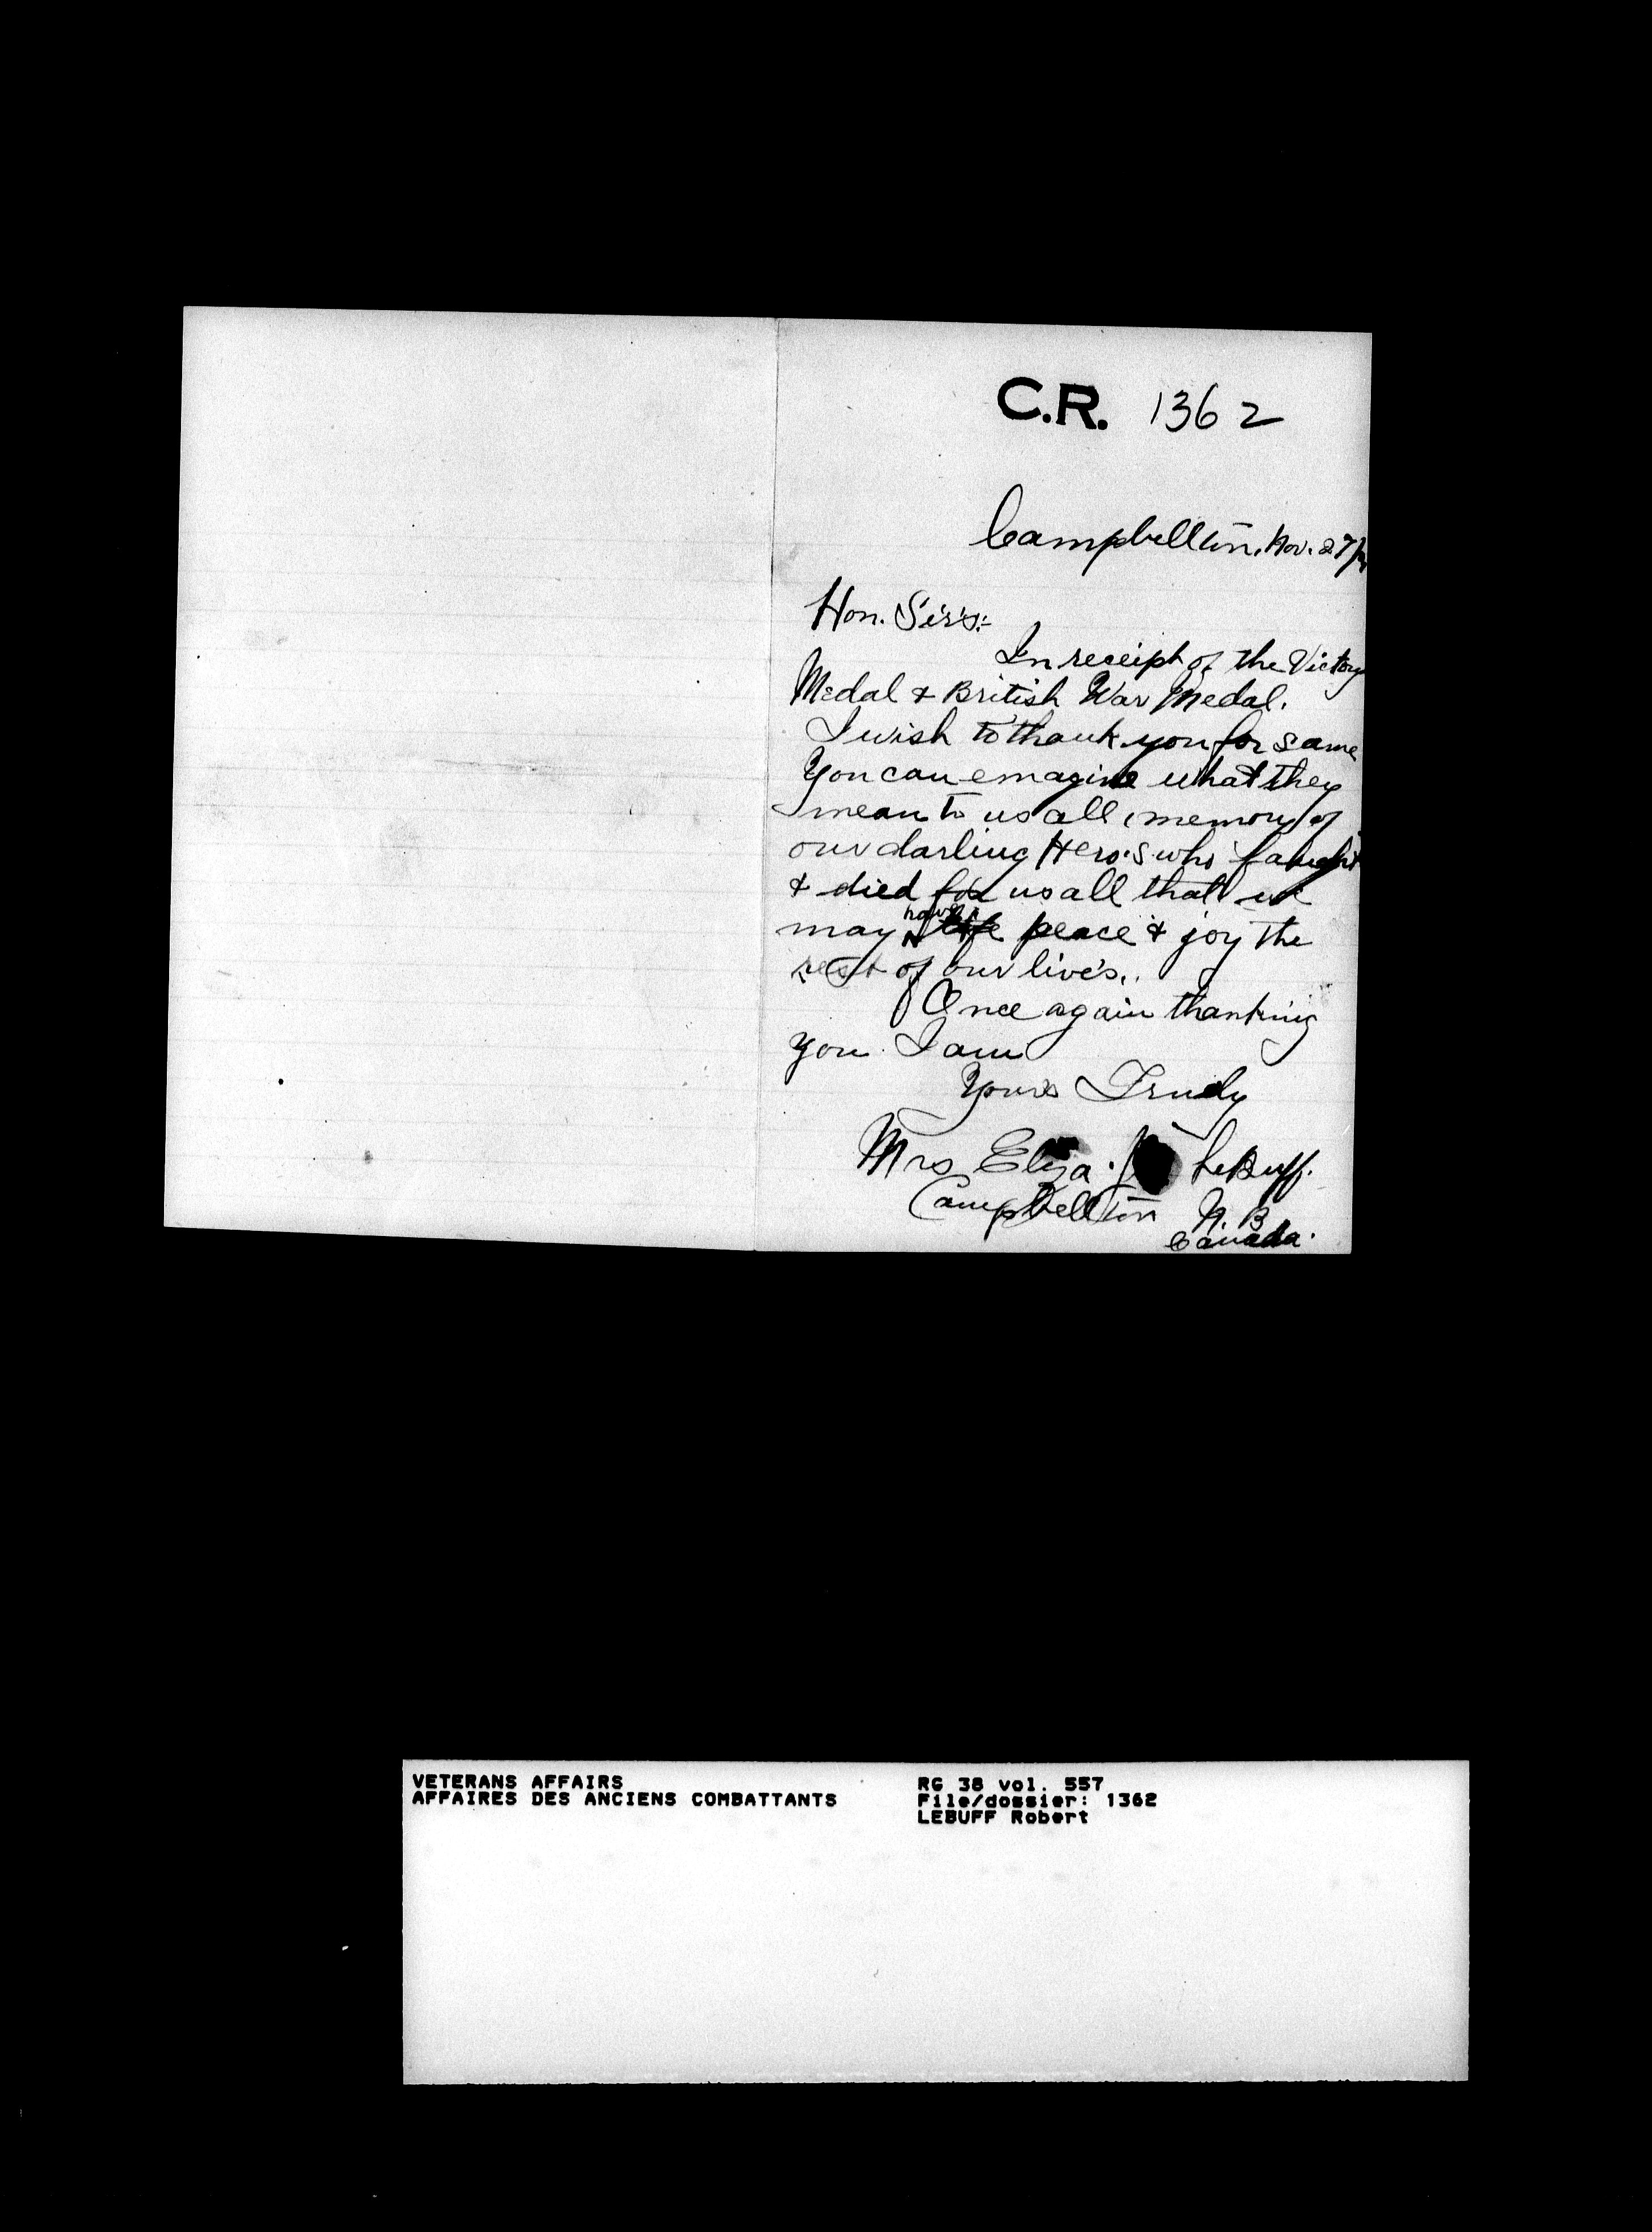 C.R. 1362
Campbellton, Nov. 27/
Hon. Sir's:-
In receipt of the Victory
Medal & British War Medal.
I wish to thank you for same
You can emagine what they
mean to us all, memory of
our darling Hero's who faught
& died for us all that we
may have peace & joy the
rest of our live's.
Once again thanking
you I am
Your's Truely
Mrs Eliza. LeBuff.
Campbellton N.B.
Canada.
VETERANS AFFAIRS
AFFAIRES DES ANCIENS COMBATTANTS
RG 38 vol. 557
File/dossier: 1362
LEBUFF Robert